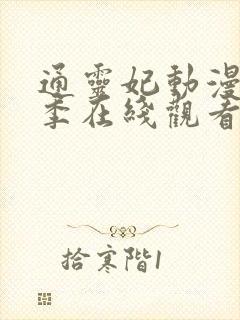 通靈妃動漫
季在綫觀看
拾寒階1